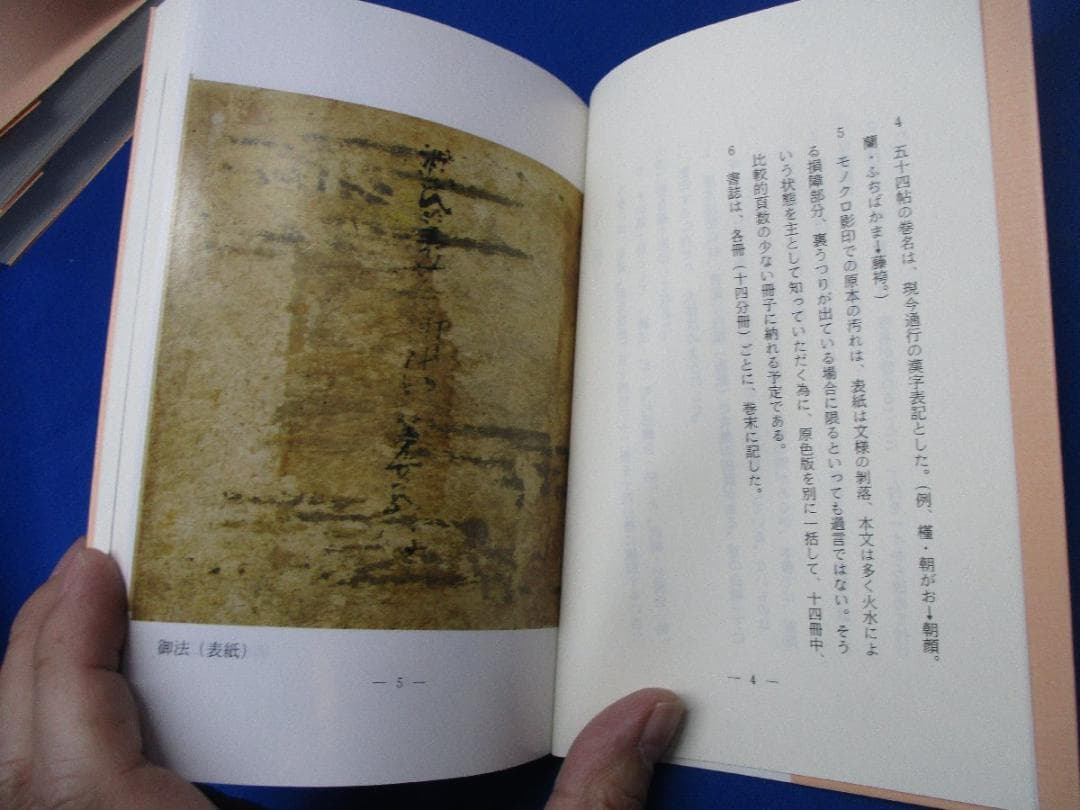 4 五十四帖の巻名は、現今通行の漢字表記とした。(例、槿・朝がお→朝顔。
蘭・ふぢばかま→藤袴。)
5 モノクロ影印での原本の汚れは、表紙は文様の剥落、本文は多く火水によ
る損障部分、裏うつりが出ている場合に限るといっても過言ではない。そう
いう状態を主として知っていただく為に、原色版を別に一括して、十四冊中、
比較的頁数の少ない冊子に納れる予定である。
6 書誌は、各冊(十四分冊)ごとに、巻末に記した。
— 4 —
御法(表紙)
— 5 —